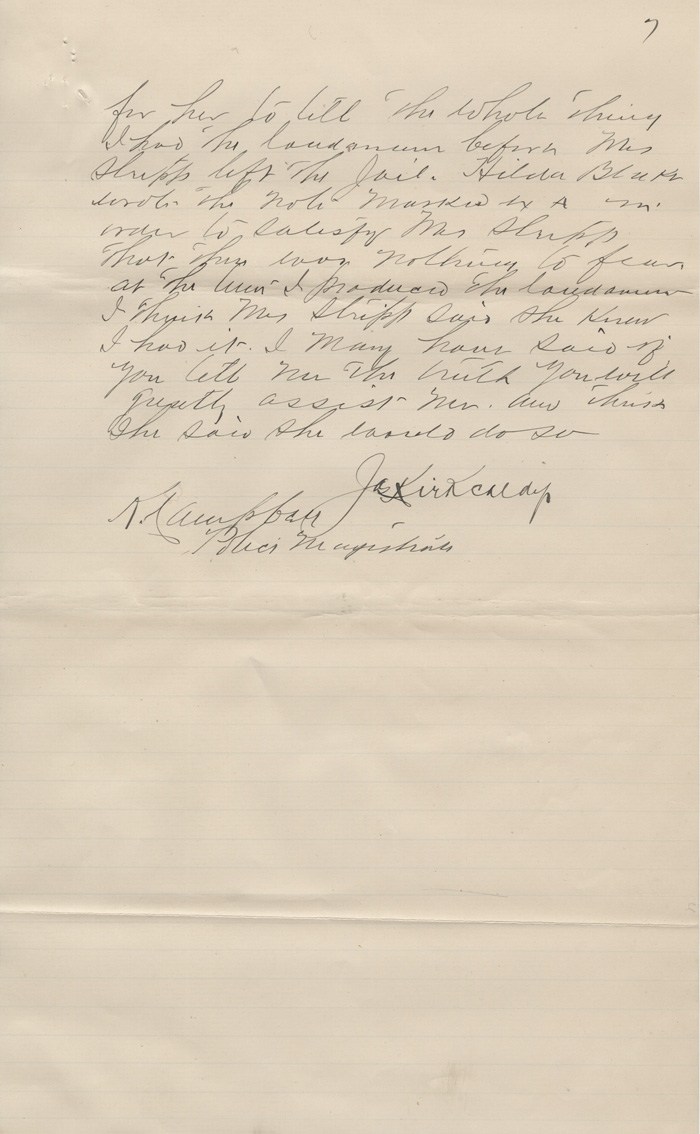 7
for her to tell the whole thing
I had the laudanum before Mrs
Stripp left the Jail. Hilda Blake
wrote the note marked Ex A in
order to satisfy Mrs Stripp
that there was nothing to fear
at the time I produced the laudanum
I think Mrs Stripp said she knew
I had it. I may have said if
you tell me the truth you will
greatly assist me. and think
she said she would do so
Jas Kirkcaldy
Police Magistrate